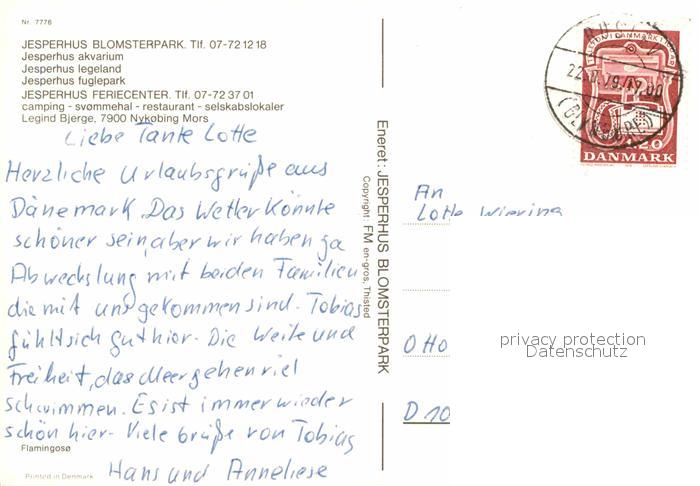 Nr. 7776
JESPERHUS BLOMSTERPARK. Tlf. 07-72 12 18
Jesperhus akvarium
Jesperhus legeland
Jesperhus fuglepark
JESPERHUS FERIECENTER. Tlf. 07-72 37 01
camping - svømmehal - restaurant - selskabslokaler
Legind Bjerge, 7900 Nykøbing Mors
Liebe Tante Lotte
Herzliche Urlaubsgrüße aus
Dänemark. Das Wetter könnte
schöner sein, aber wir haben ja
Abwechslung mit beiden Familien
die mit uns gekommen sind. Tobias
fühlt sich gut hier. Die Weite und
Freiheit, das Meer gehen viel
schwimmen. Es ist immer wieder
schön hier. Viele Grüße von Tobias
Hans und Anneliese
Flamingosø
Printed in Denmark
Eneret: JESPERHUS BLOMSTERPARK
Copyright: FM en-gros, Thisted
DANMARK
An
Lotte
Otto
D 10
privacy protection
Datenschutz